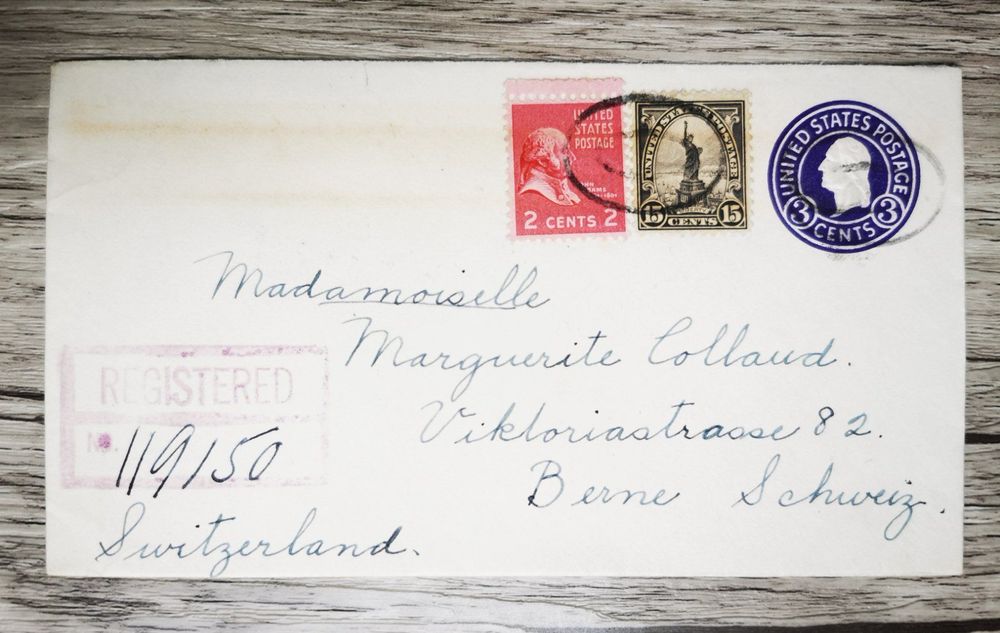 UNITED
STATES
POSTAGE
JOHN
ADAMS
2 CENTS 2
UNITED STATES POSTAGE
15 CENTS 15
UNITED STATES POSTAGE
3 CENTS 3
Madamoiselle
Marguerite Collaud.
Viktoriastrasse 82.
Berne Schweiz.
REGISTERED
No. 119150
Switzerland.